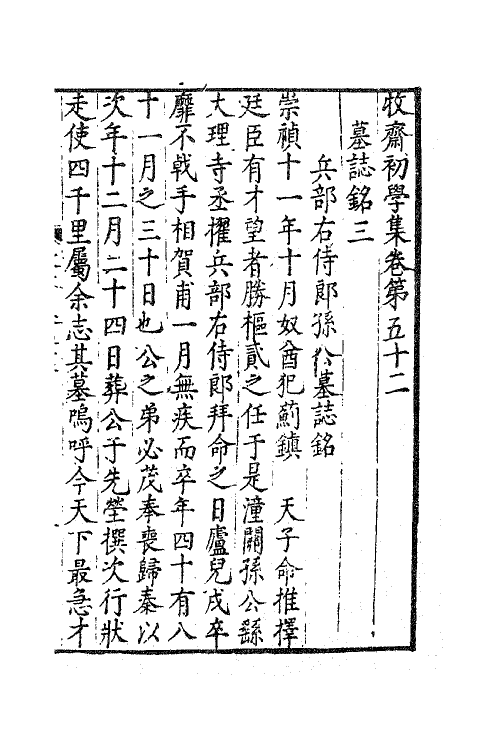 牧齋初學集卷第五十二
墓誌銘三
兵部右侍郎孫公墓誌銘
崇禎十一年十月奴酋犯薊鎮　天子命推擇
廷臣有才望者勝樞貳之任于是潼關孫公繇
大理寺丞擢兵部右侍郎拜命之日廬兒戍卒
靡不戟手相賀甫一月無疾而卒年四十有八
十一月之三十日也公之弟必茂奉喪歸秦以
次年十二月二十四日葬公于先塋撰次行狀
走使四千里屬余志其墓嗚呼今天下最急才